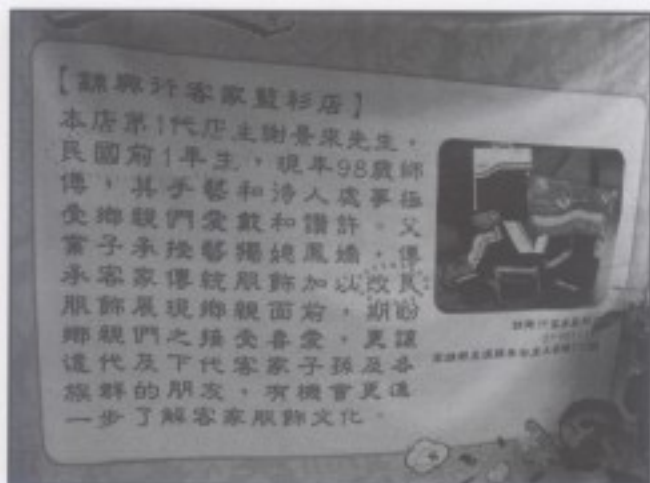 【錦興行客家藍衫店】
本店第1代店主謝景來先生，
民國前1年生，現年98歲師
傅，其手藝和待人處事極
受鄉親們愛戴和讚許。父
業子承授藝獨媳鳳嬌，傳
承客家傳統服飾加以改良
服飾展現鄉親面前，期盼
鄉親們之接受喜愛，更讓
這代及下代客家子孫及各
族群的朋友，有機會更進
一步了解客家服飾文化。